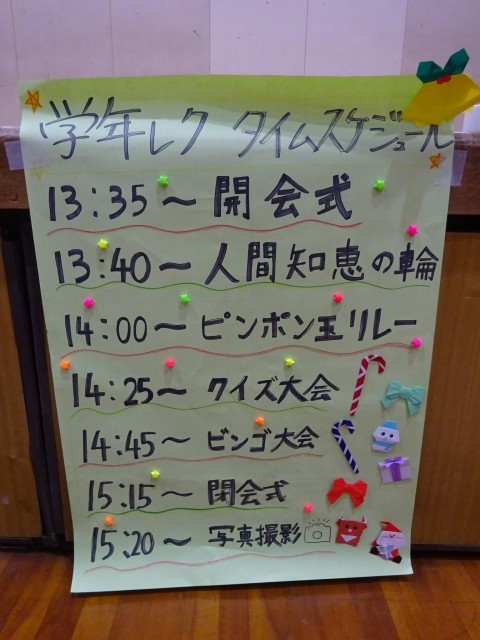 学年レク タイムスケジュール
13:35～開会式
13:40～人間知恵の輪
14:00～ピンポン玉リレー
14:25～クイズ大会
14:45～ビンゴ大会
15:15～閉会式
15:20～写真撮影